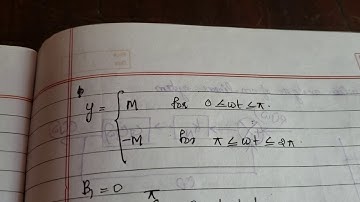 y = { M for 0 ≤ ωt ≤ π.
-M for π ≤ ωt ≤ 2π.
B₁ = 0
π